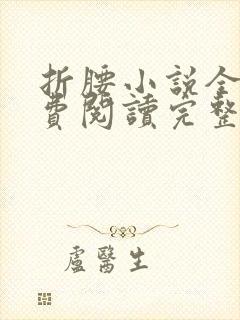 折腰小説全
費閱讀完整
盧醫生